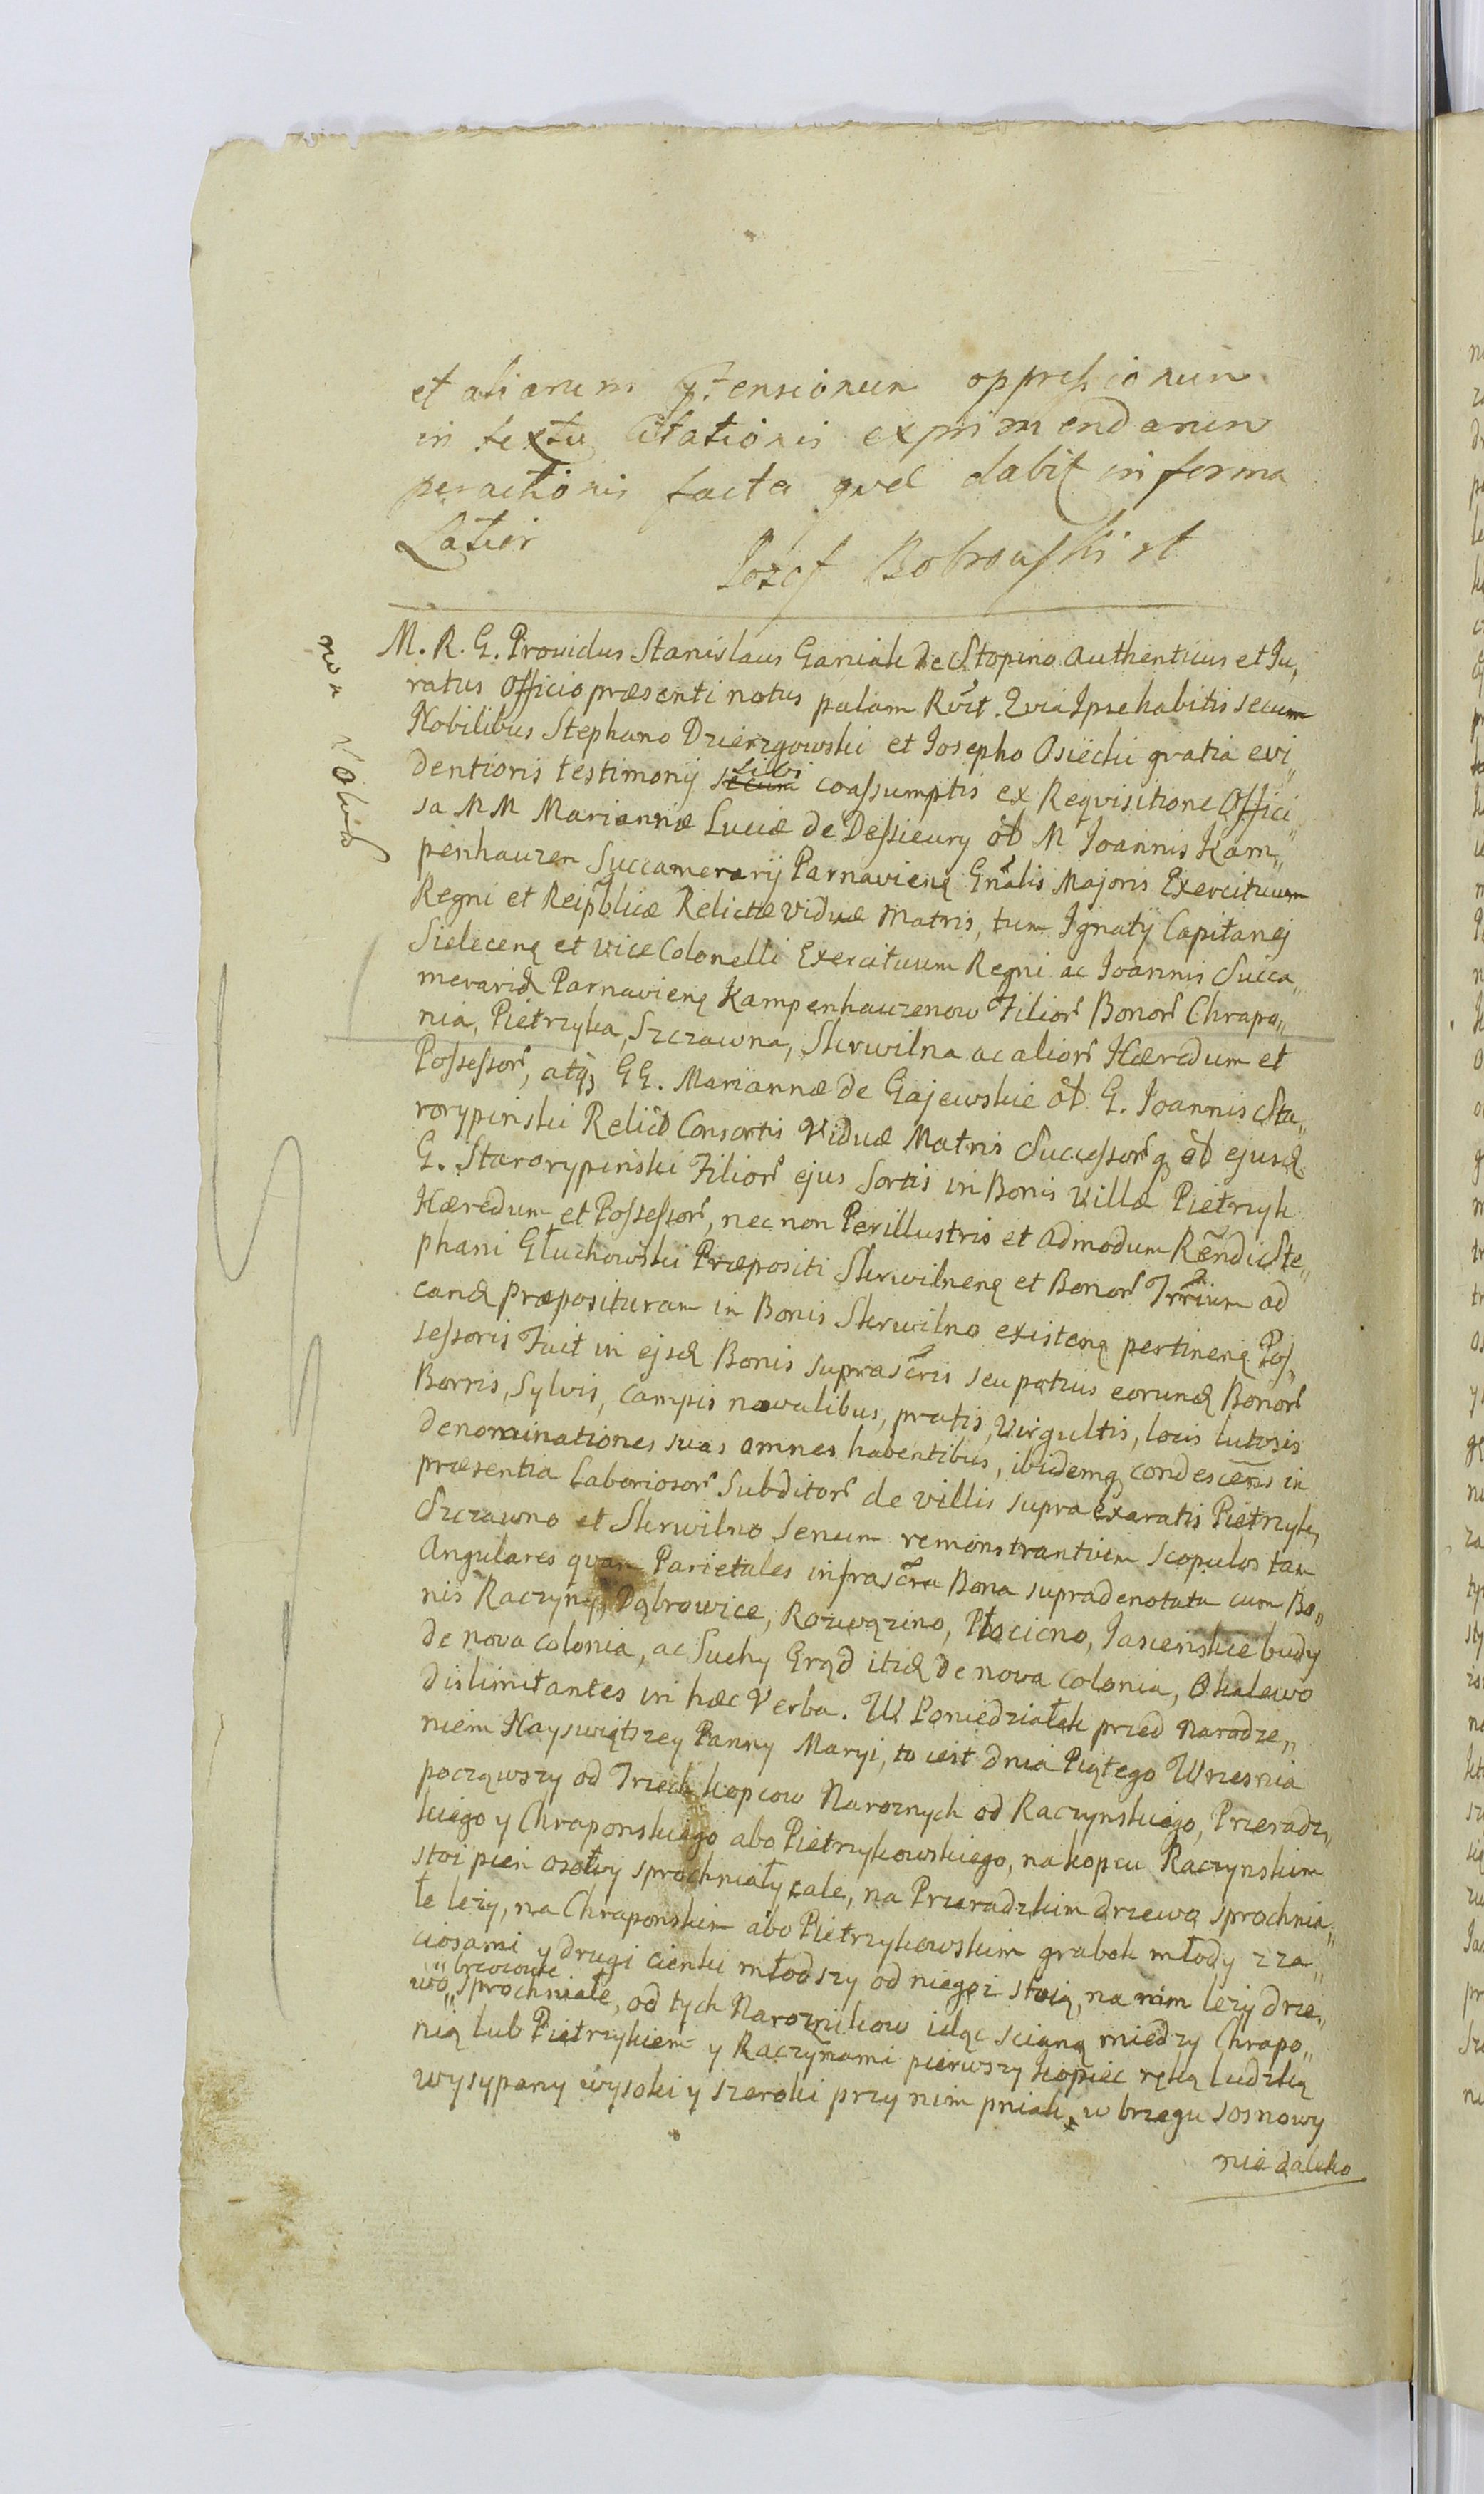 et aliarum ptensionum oppressionum
in textu Citationis exprimendarum
peractionis facta qvod dabit in forma
Latior
Jozef Bobrowski
M. R. G. Providus Stanislaus Ganiak de Stopino Authenticus et Ju„
ratus Officio præsenti notus palam Rvit. Qvia Ipse habitis secum
Nobilibus Stephano Dzierzgowski et Josepho Osiecki gratia evi„
dentioris testimonij sibi coassumptis ex Reqvisitione Offici„
sa MM Mariannæ Luciæ de Dessieury ol͠ M. Joannis Kam„
penhauzen Succamerarij Parnavienꝗ Gn͠alis Majoris Exercituum
Regni et Reip͠blicæ Relictæ viduæ Matris, tum Ignatij Capitanej
Sielecenꝗ et vice Colonelli Exercituum Regni ac Joannis Succa„
merarid Parnavienꝗ Kampenhauzenow Filior͠ Bonor͠ Chrapo„
nia, Pietrzyka, Szczawna, Skrwilna ac alior͠ Hæredum et
Possessor͠, atq3 GG. Mariannæ de Gajewskie ol͠ G. Joannis Sta„
rorypinski Relict͠ Consortis Viduæ Matris Successor͠q ol͠ ejusd
G. Starorypinski Filior͠ ejus Sortis in Bonis Villæ Pietrzyk
Hæredum et Possessor͠, nec non Perillustris et Admodum R͠endi Ste„
phani Głuchowski Præpositi Skrwilnenꝗ et Bonor͠ Trr͠ium ad
cand Præposituram in Bonis Skrwilno existenꝗ pertinenꝗ Pos„
sessoris Fuit in ejsd Bonis suprascr͠is seu potius eorund Bonor͠
Borris, Sylvis, campis navalibus, pratis, Virgultis, locis lutosis
denominationes suas omnes habentibus, ibidemq condescen͠s in
præsentia Laboriosor͠ Subditor͠ de villis supra exaratis Pietrzyk,
Szczawno et Skrwilno Senum remonstrantium Scopulos tam
Angulares quam Parietales infrascr͠ta Bona supradenotata cum Bo„
nis Raczyny, Dąbrowice, Rozwązino, Płocicno, Jasieńskie budy
de nova Colonia, ac Suchy Grąd itid de nova Colonia, Okalewo
dislimitantes in hæc Verba. W Poniedziałek przed Narodze„
niem Nayswiątszey Panny Maryi, to iest dnia Piątego Wrzesnia
począwszy od Trzech kopcow Naroznych od Raczynskiego, Przeradz„
kiego y Chraponskiego abo Pietrzykowskiego, na kopcu Raczynskim
stoi pień osowy sprochniały cale, na Przeradzkim drzewo sprochnia„
łe lezy, na Chraponskim abo Pietrzykowskim grabek młody z za„
ciosami y drugi cienki młodszy od niegoz stoią, na nim lezy drze„
wo „brzozowe„ sprochniałe, od tych Naroznikow idąc scianą między Chrapo„
nią lub Pietrzykiem y Raczynami pierwszy kopiec ręką ludzką
wysypany wysoki y szeroki przy nim pniak w brzegu sosnowy
nie daleko